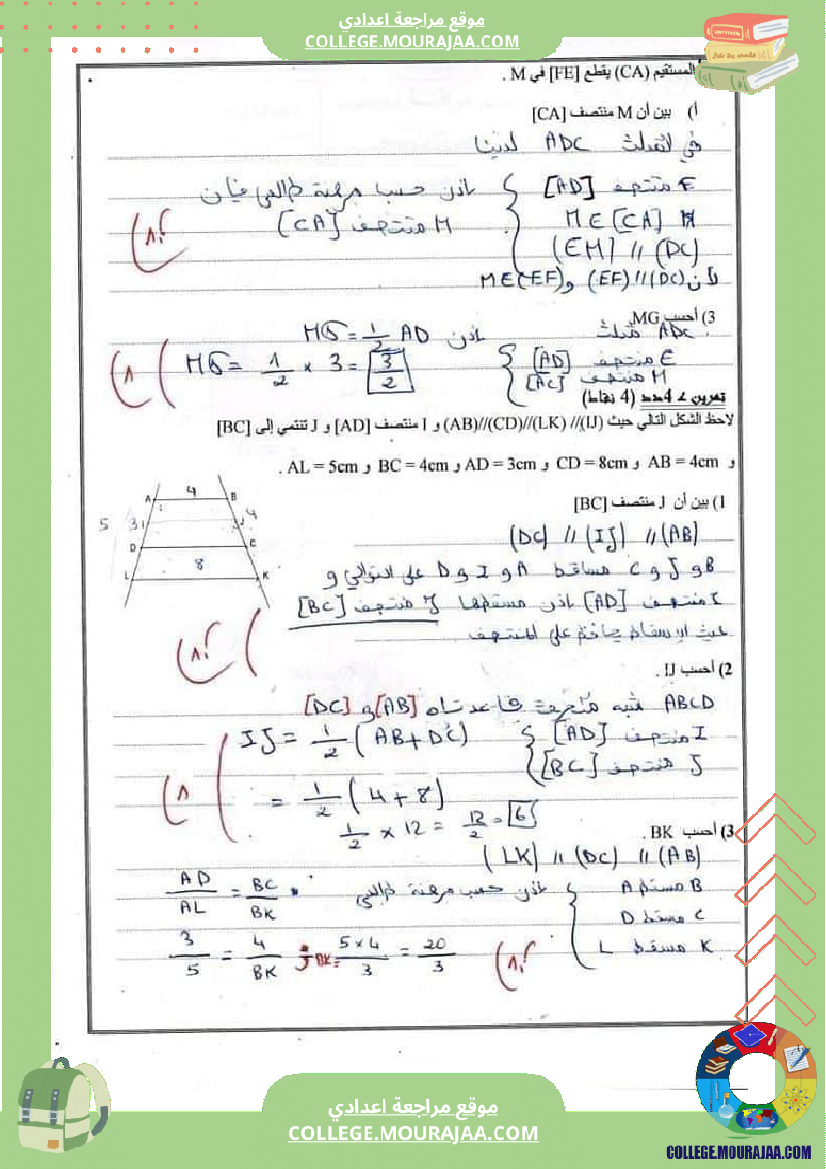 موقع مراجعة اعدادي
COLLEGE.MOURAJAA.COM
المستقيم (CA) يقطع [FE] في M .
أ) بين أن M منتصف [CA]
في المثلث ADC لدينا
E منتصف [AD] إذن حسب مرهنة طالس فإن
M ∈ [CA] M منتصف [CA]
(EM) // (DC)
لأن (DC)//(EF) و M∈(EF)
3) أحسب MG.
ADC مثلث إذن MG = 1/2 AD
E منتصف [AD] MG = 1/2 × 3 = 3/2
M منتصف [AC]
تمرين 4 عدد (4 نقاط)
لاحظ الشكل التالي حيث (AB)//(CD)//(LK) //(IJ) و I منتصف [AD] و J تنتمي إلى [BC]
و AB = 4cm و CD = 8cm و AD = 3cm و BC = 4cm و AL = 5cm .
1) بين أن J منتصف [BC]
(DC) // (IJ) // (AB)
B و J و C مساقط A و I و D على التوالي و
I منتصف [AD] إذن مسقطها J منتصف [BC]
حيث الإسقاط يحافظ على المنتصف
A 4 B
5 3 I J 4
D C
8
L K
2) أحسب IJ .
ABCD شبه منحرف قاعدتاه [AB] و [DC]
I منتصف [AD] IJ = 1/2 (AB + DC)
J منتصف [BC]
= 1/2 (4 + 8)
1/2 × 12 = 12/2 = 6
3) أحسب BK .
(LK) // (DC) // (AB)
B مسقط A إذن حسب مرهنة طالس AD/AL = BC/BK
C مسقط D
K مسقط L 3/5 = 4/BK BK = 5×4/3 = 20/3
موقع مراجعة اعدادي
COLLEGE.MOURAJAA.COM
COLLEGE.MOURAJAA.COM